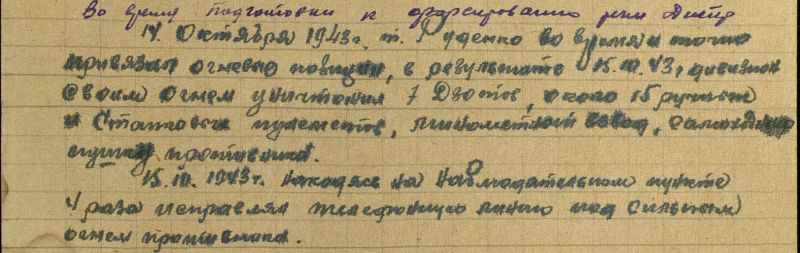 Во время подготовки к форсированию реки Днепр
14 Октября 1943г. т. Руденко во время и точно
привязал огневые позиции, в результате 15.10.43, дивизион
своим огнем уничтожил 7 Дзотов, около 15 ручных
и Станковых пулеметов, минометный взвод,
пушку противника.
15.10.1943г. находясь на наблюдательном пункте
4 раза исправлял телефонную линию под сильным
огнем противника.